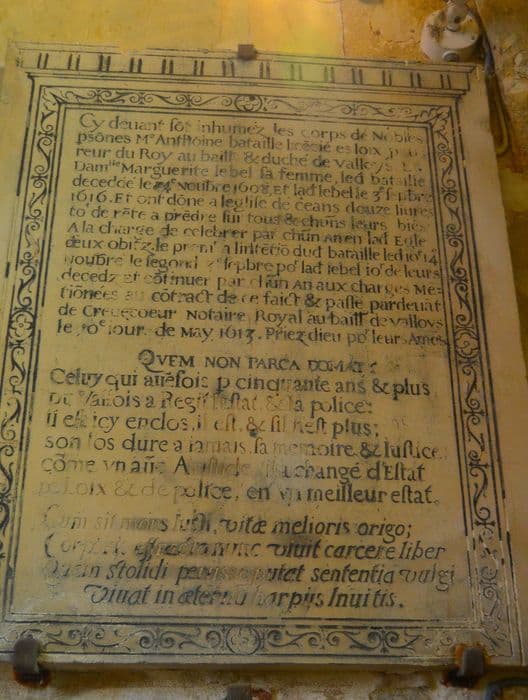 Cy deuant sōt inhumez les corps de Nobles
psōnes Mᵉ Anthoine bataille licēcié es loix
reur du Roy au baill. & duché de valloys
Damˡˡᵉ Marguerite lebel sa femme, led bataille
decedé le 14ᵉ Nouƀre 1608 et lad lebel le 3ᵉ sepƀre
1616. Et ont dōné a leglise de ceans douze liures
toˢ de rēte a prēdre sur tous & chūns leurs biēs
A la charge de celebrer par chūn An en lad Egle
deux obitz, le premʳ a lintētiō dud bataille led ioʳ 14
nouƀre le segond sepƀre poʳ lad lebel ioʳ de leurs
decedz et cōtinuer par chūn An aux charges Me-
tiōnees au cōtract de ce faict & passé pardeuāt
de Creuecoeur Notaire Royal au baill de valloys
le 10ᵉ iour de May 1613. Priez dieu poʳ leurs Ames
QVEM NON PARCA DOMAT
Celuy qui autrefois p cinquante ans & plus
Du Valois a Regi l'Estat & la police:
Il est icy enclos, il est, & sil nest plus;
son los dure a iamais, sa memoire & Iustice.
cōme vn aūe Aristide, il a changé d'Estat
de Loix & de police, en vn meilleur estat.
Cum sit mors iusti, vitæ melioris origo;
Corporis nunc viuit carcere liber
Quem stolidi periisse putat sententia vulgi
Viuat in æternū harpijs Inuitis.